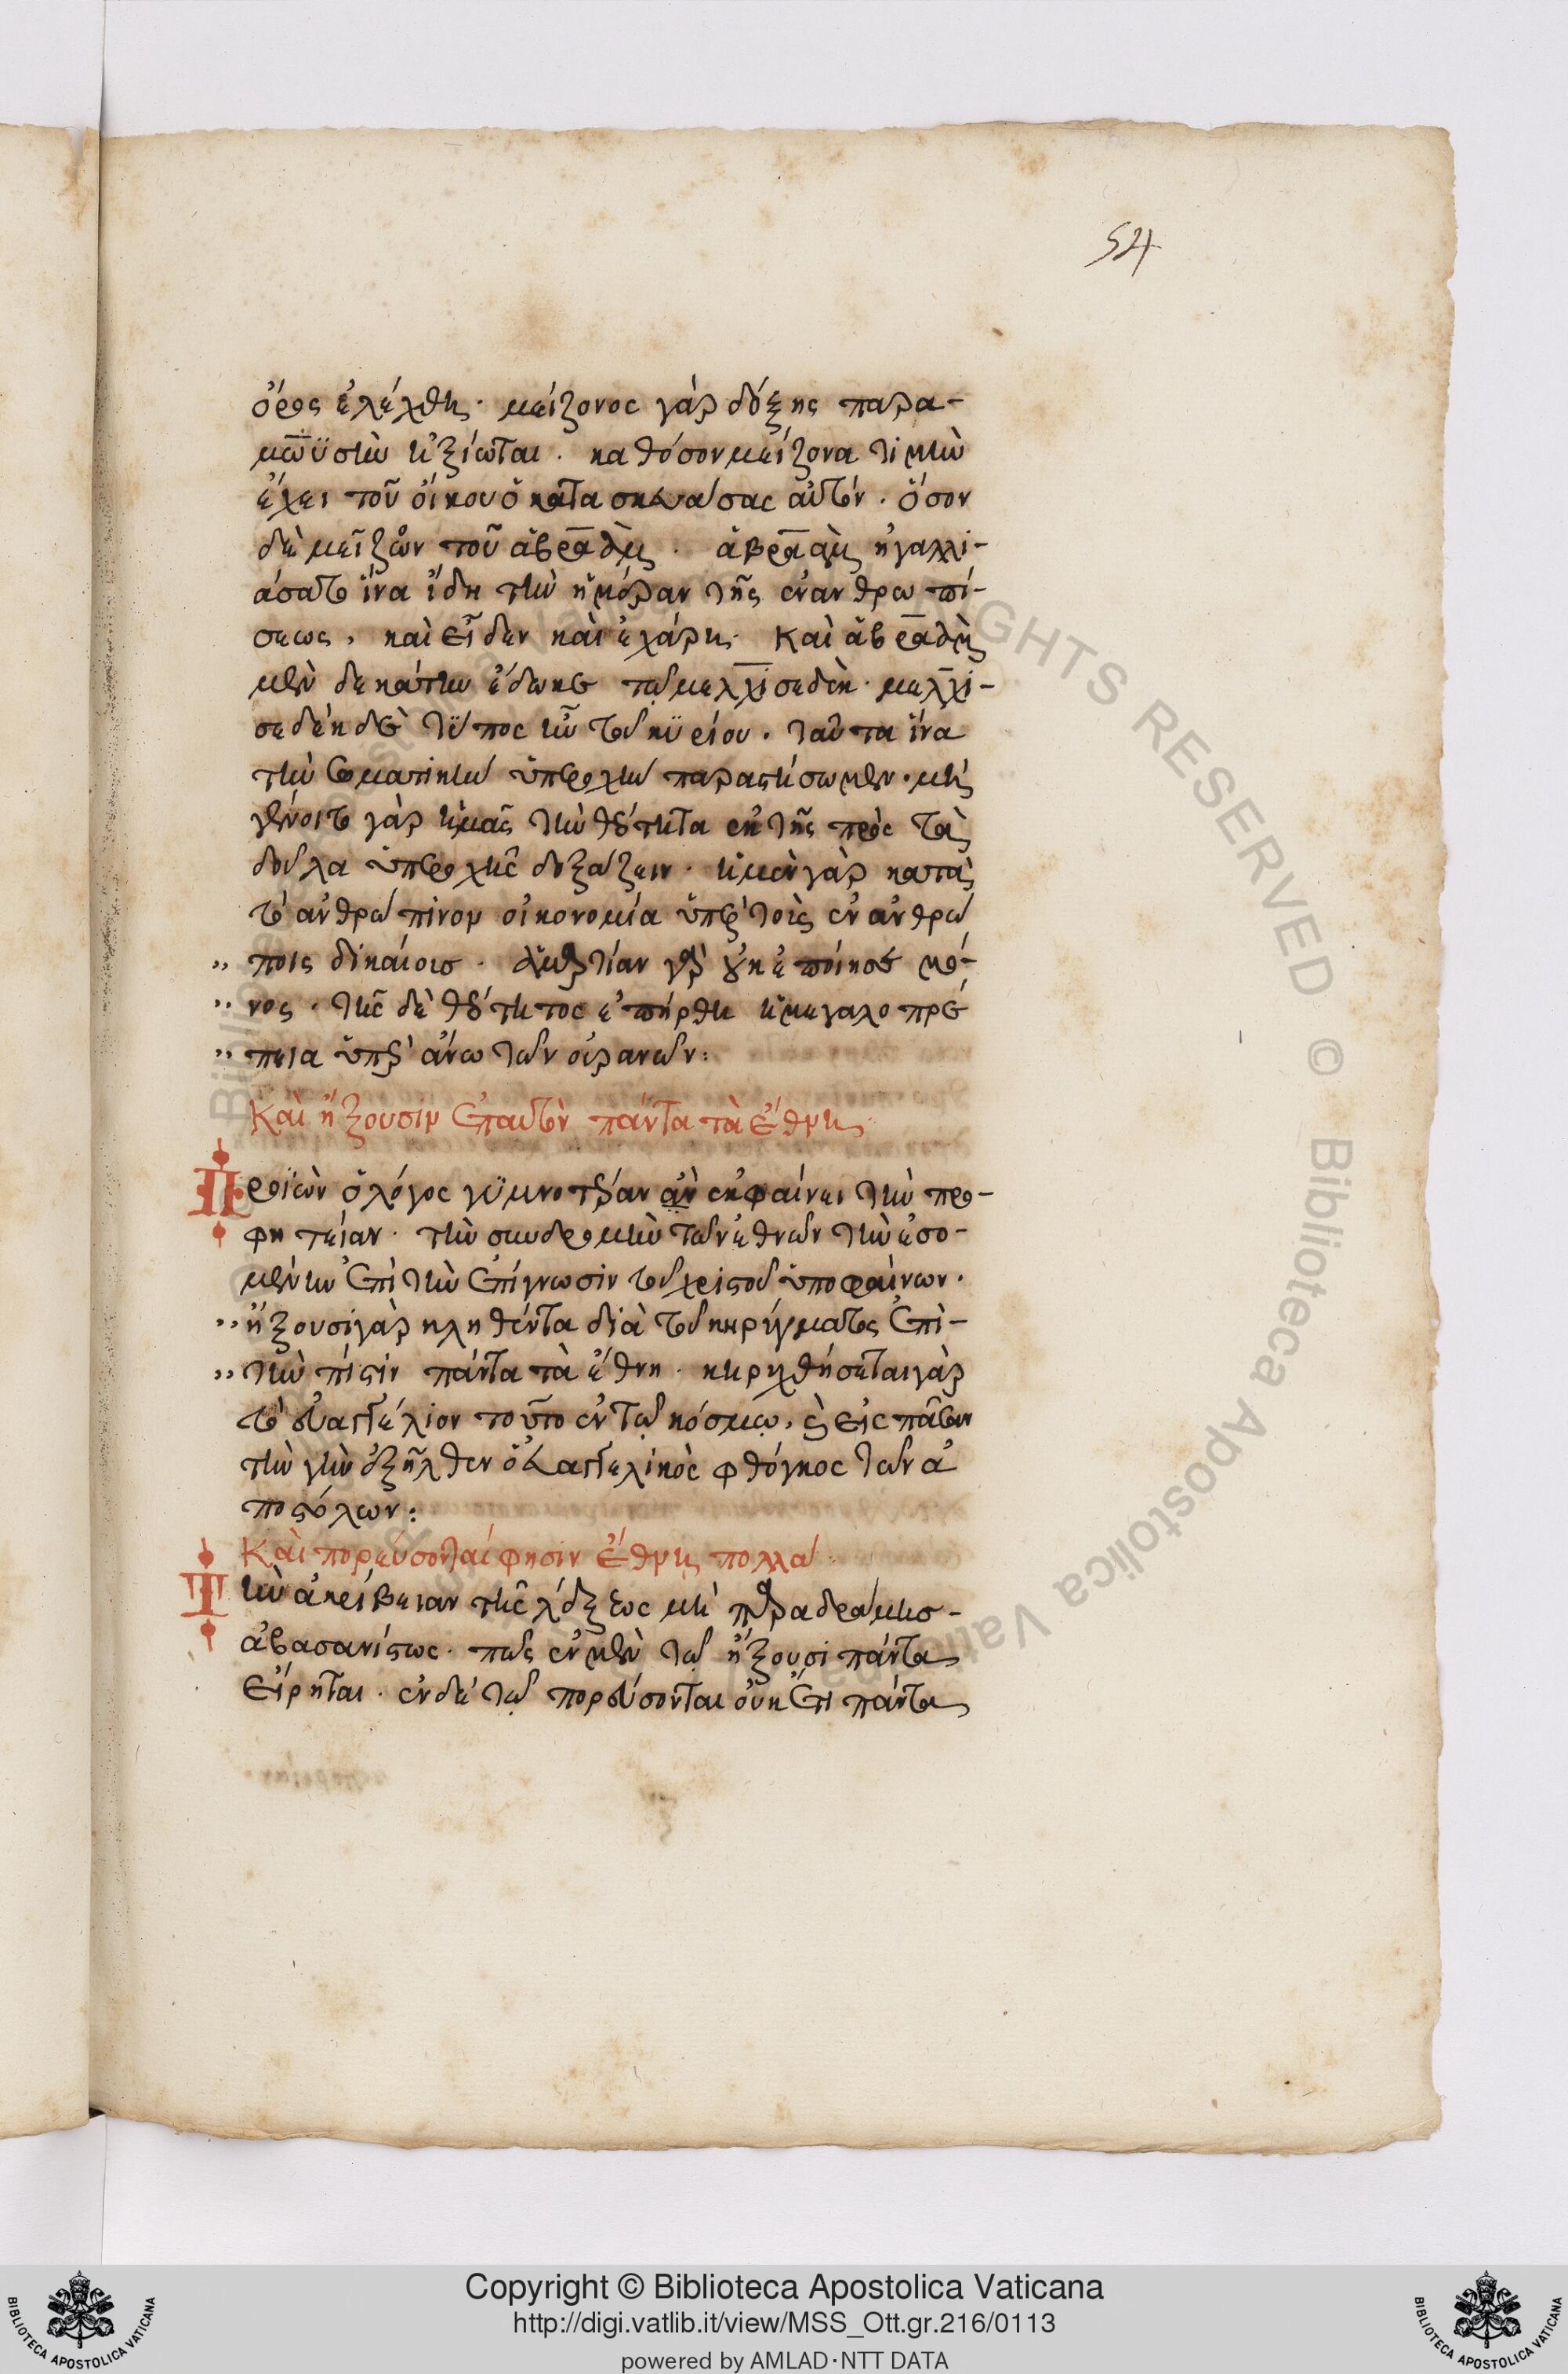 54
ὄρος ἐλέχθη· μείζονος γὰρ δόξης παρα-
μωϋσῆν ἠξίωται. καθόσον μείζονα τιμὴν
ἔχει τοῦ οἴκου ὁ κατασκευάσας αὐτόν. ὅσον
δὲ μεῖζων τοῦ ἀβραὰμ. ἀβραὰμ ἠγαλλι-
άσατο ἵνα ἴδη τὴν ἡμέραν τῆς ἐνανθρωπί-
σεως, καὶ εἶδεν καὶ ἐχάρη. καὶ ἀβραὰμ
μὲν δεκάτην ἔδωκε τῷ μελχισεδὲκ. μελχι-
σεδὲκ δὲ τύπος ἦν τοῦ κυρίου. ταῦτα ἵνα
τὴν σωματικὴν ὑπεροχὴν παραστήσωμεν. μὴ
γένοιτο γὰρ ἡμᾶς τὴν θεότητα ἐκ τῆς πρὸς τὰ
δοῦλα ὑπεροχῆς δοξάζειν. ἡ μὲν γὰρ κατὰ
τὸ ἀνθρώπινον οἰκονομία ὑπὲρ τοὺς ἐν ἀνθρώ
ποις δικαίοις. ἁμαρτίαν γὰρ οὐκ ἐποίησε μό-
νος. τῆς δὲ θεότητος ἐπήρθη ἡ μεγαλοπρέ
πεια ὑπὲρ ἄνω τῶν οὐρανῶν:
Καὶ ἥξουσιν ἐπαυτὸν πάντα τὰ ἔθνη
Προϊὼν ὁ λόγος γυμνοτέραν ἂν ἐκφαίνει τὴν προ-
φητείαν. τὴν συνδρομὴν τῶν ἐθνῶν τὴν ἐσο-
μένην ἐπὶ τὴν ἐπίγνωσιν τοῦ χριστοῦ ὑποφαίνων.
ἥξουσι γὰρ κληθέντα διὰ τοῦ κηρύγματος ἐπὶ-
τὴν πίστιν πάντα τὰ ἔθνη. κηρυχθήσεται γὰρ
τὸ εὐαγγέλιον τοῦτο ἐν τῷ κόσμῳ, καὶ εἰς πᾶσαν
τὴν γῆν ἐξῆλθεν ὁ εὐαγγελικὸς φθόγγος τῶν ἀ
ποστόλων:
Καὶ πορεύσονται φησιν ἔθνη πολλά
Τὴν ἀκρίβειαν τῆς λέξεως μὴ παραδράμης-
ἀβασανίστως. πῶς ἐν μὲν τῷ ἥξουσι πάντα
εἴρηται. ἐν δὲ τῷ πορεύσονται οὐκ ἔτι πάντα
GHTS RESERVED © Biblioteca Apostolica Vaticana
Copyright © Biblioteca Apostolica Vaticana
http://digi.vatlib.it/view/MSS_Ott.gr.216/0113
powered by AMLAD·NTT DATA
BIBLIOTECA APOSTOLICA VATICANA
BIBLIOTECA APOSTOLICA VATICANA